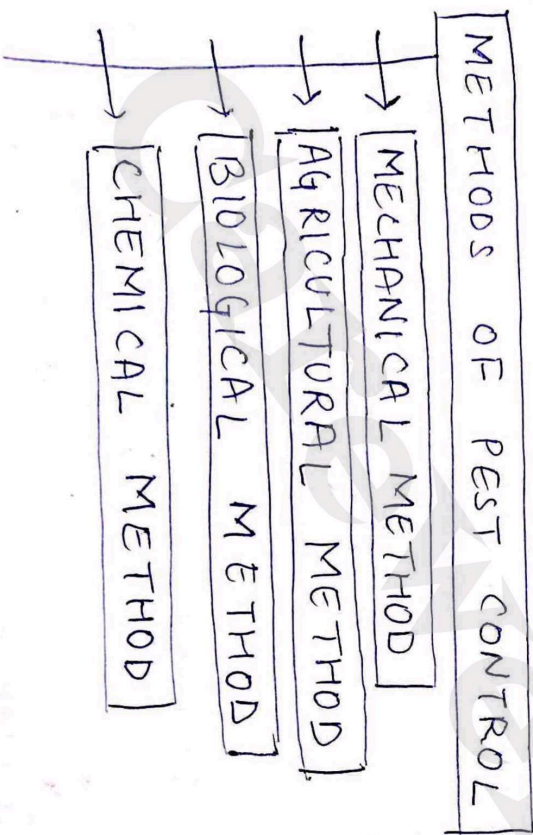 METHODS OF PEST CONTROL
MECHANICAL METHOD
AGRICULTURAL METHOD
BIOLOGICAL METHOD
CHEMICAL METHOD